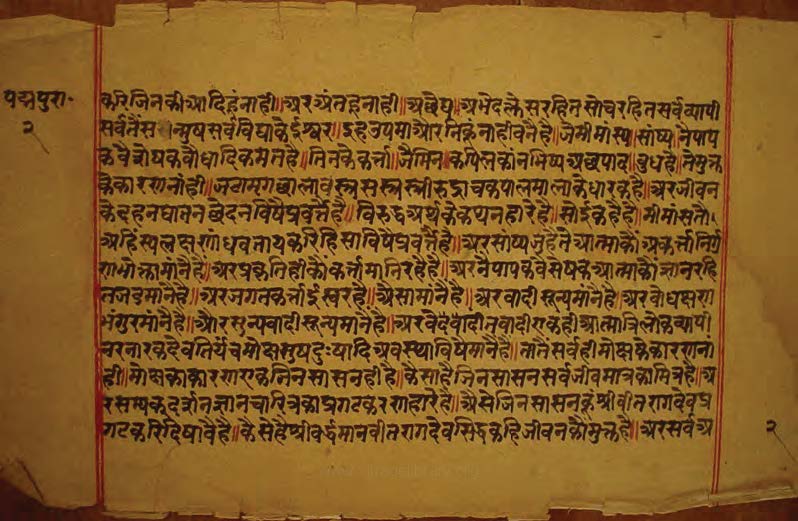 पद्मपुरा॰
२
करि जिनकी आदि हू नाही॥ अर अंत हू नाही॥ अछेद्य॥ अभेद क्लेस रहित सोच रहित सर्वव्यापी
सर्वतैं सन्मुष सर्व विद्याके ईश्वर॥ इह उपमा और निकूं नाही बनै है॥ जे मीमांस्य॥ सांष्य॥ नैयाय
क वैशेषक बौधादिक मत है॥ तिनके कर्त्ता॥ जैमिन॥ कपिल अछपाद॥ बुध है॥ ते मुक्त
के कारण नांही॥ जटा मृगछाला वस्त्र सस्त्र स्त्री रुद्राक्ष कपालमालाके धारक है॥ अर जीवन
के दहन घातन छेदन विषै प्रवर्त्तै है॥ विरुद्ध अर्थके कथनहारे है॥ मीमांस तौ॰
अहिंसा लक्षण धर्म वताय करि हिंसा विषै प्रवर्त्तै है॥ अर सांष्य जु है ते आत्माकौं अकर्त्ता निर्गु
ण भोक्ता मांनै है॥ अर प्रकृति हीकौं कर्त्ता मानि रहे है॥ अर नैयायक वैसेषक आत्माकौं ज्ञान रहि
त जड मांनै है॥ अर जगत कर्त्ता ईस्वर है॥ ऐसा मांनै है॥ अर वादी सून्य मांनै है॥ अर बोध क्षण
भंगुर मांनै है॥ और सून्यवादी सून्य मानै है॥ अर वेदवादी एक ही आत्मा त्रिलोक व्यापी
नर नारक देव तिर्यंच मोक्ष सुष दुःषादि अवस्था विषै मानै है॥ तातैं सर्व ही मोक्षके कारण नां
ही॥ मोक्षका कारण एक जिन सासन ही है॥ कैसा है जिन सासन सर्व जीव मात्रका मित्र है॥ अ
र सम्यक दर्शन ज्ञान चारित्रका प्रगट करणहारा है॥ ऐसे जिन सासनकूं श्री वीतराग देव प्र
गट करि दिषावै है॥ कैसे है श्री वर्द्धमान वीतराग देव सिद्ध कहि जीवनकौं मुक्त है॥ अर सर्व अ
२